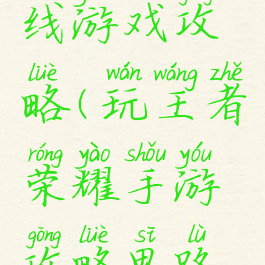 线游戏攻
lüè wán wáng zhě
略(玩王者
róng yào shǒu yóu
荣耀手游
gōng lüè sī lù
攻略思路